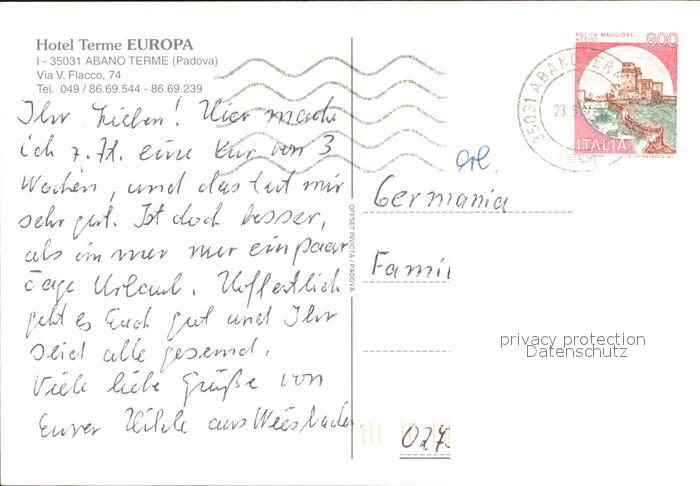 Hotel Terme EUROPA
I - 35031 ABANO TERME (Padova)
Via V. Flacco, 74
Tel. 049 / 86.69.544 - 86.69.239
Ihr Lieben! Hier mache
ich z. Zt. eine Kur von 3
Wochen, und das tut mir
sehr gut. Ist doch besser,
als immer nur ein paar
Tage Urlaub. Hoffentlich
geht es Euch gut und Ihr
seid alle gesund.
Viele liebe Grüße von
Eurer Hilde aus Wiesbaden
OFFSET INVICTA / PADOVA
ROCCA MAGGIORE
ASSISI
800
ITALIA
35031 ABANO TERME
23. 9
erl.
Germania
Famil
privacy protection
Datenschutz
024